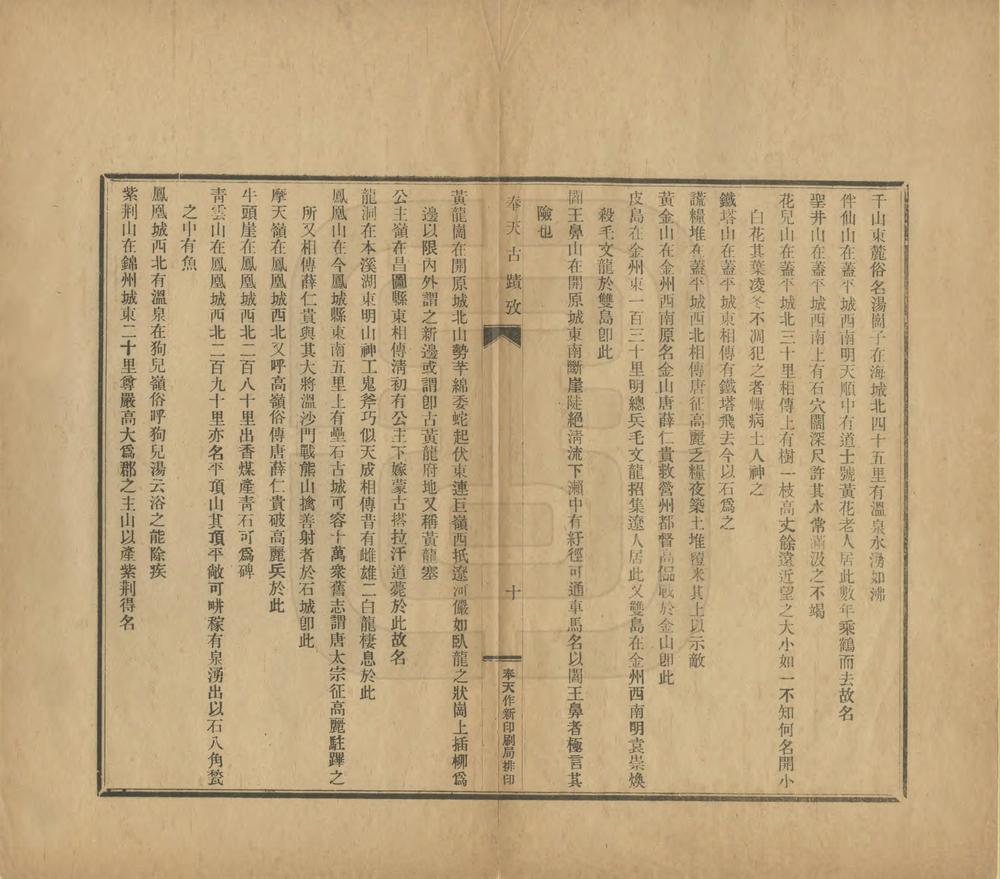 千山東麓俗名湯崗子在海城北四十五里有溫泉水湧如沸
件仙山在蓋平城西南明天順中有道士號黃花老人居此數年乘鶴而去故名
聖井山在蓋平城西南上有石穴闊深尺許其水常滿汲之不竭
花兒山在蓋平城北三十里相傳上有樹一枝高丈餘遠近望之大小如一不知何名開小
白花其葉凌冬不凋犯之者輙病土人神之
鐵塔山在蓋平城東相傳有鐵塔飛去今以石爲之
謊糧堆在蓋平城西北相傳唐征高麗乏糧夜築土堆覆米其上以示敵
黃金山在金州西南原名金山唐薛仁貴救營州都督高偘戰於金山卽此
皮島在金州東一百三十里明總兵毛文龍招集遼人居此又雙島在金州西南明袁崇煥
殺毛文龍於雙島卽此
閻王鼻山在開原城東南斷崖陡絕淸流下瀨中有紆徑可通車馬名以閻王鼻者極言其
險也
奉天古蹟攷
十
奉天作新印刷局排印
黃龍崗在開原城北山勢芊綿委蛇起伏東連巨嶺西抵遼河儼如臥龍之狀崗上插柳爲
邊以限內外謂之新邊或謂卽古黃龍府地又稱黃龍塞
公主嶺在昌圖縣東相傳淸初有公主下嫁蒙古搭拉汗道薨於此故名
龍洞在本溪湖東明山神工鬼斧巧似天成相傳昔有雌雄二白龍棲息於此
鳳凰山在今鳳城縣東南五里上有壘石古城可容十萬衆舊志謂唐太宗征高麗駐蹕之
所又相傳薛仁貴與其大將溫沙門戰熊山擒善射者於石城卽此
摩天嶺在鳳凰城西北又呼高嶺俗傳唐薛仁貴破高麗兵於此
牛頭崖在鳳凰城西北二百八十里出香煤產靑石可爲碑
靑雲山在鳳凰城西北二百九十里亦名平頂山其頂平敞可畊稼有泉湧出以石八角甃
之中有魚
鳳凰城西北有溫泉在狗兒嶺俗呼狗兒湯云浴之能除疾
紫荆山在錦州城東二十里尊嚴高大爲郡之主山以產紫荆得名